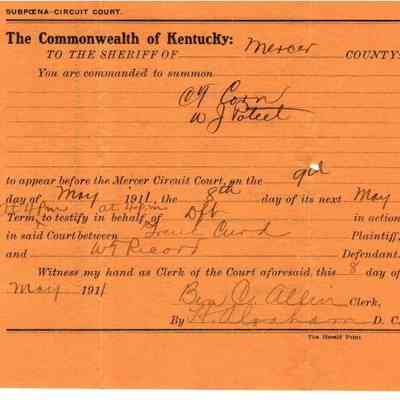 SUBPŒNA–CIRCUIT COURT.
The Commonwealth of Kentucky:
TO THE SHERIFF OF Mercer COUNTY:
You are commanded to summon
C Y Corn
W J Poteet
to appear before the Mercer Circuit Court, on the 9th
day of May 1911, the 8th day of its next May
at 4 pm
Term, to testify in behalf of Dft in action
in said Court between Curd Plaintiff,
and W T Record Defendant.
Witness my hand as Clerk of the Court aforesaid, this 8 day of
May 1911 Ben C. Allin Clerk,
By H. Abraham D. C.
The Herald Print